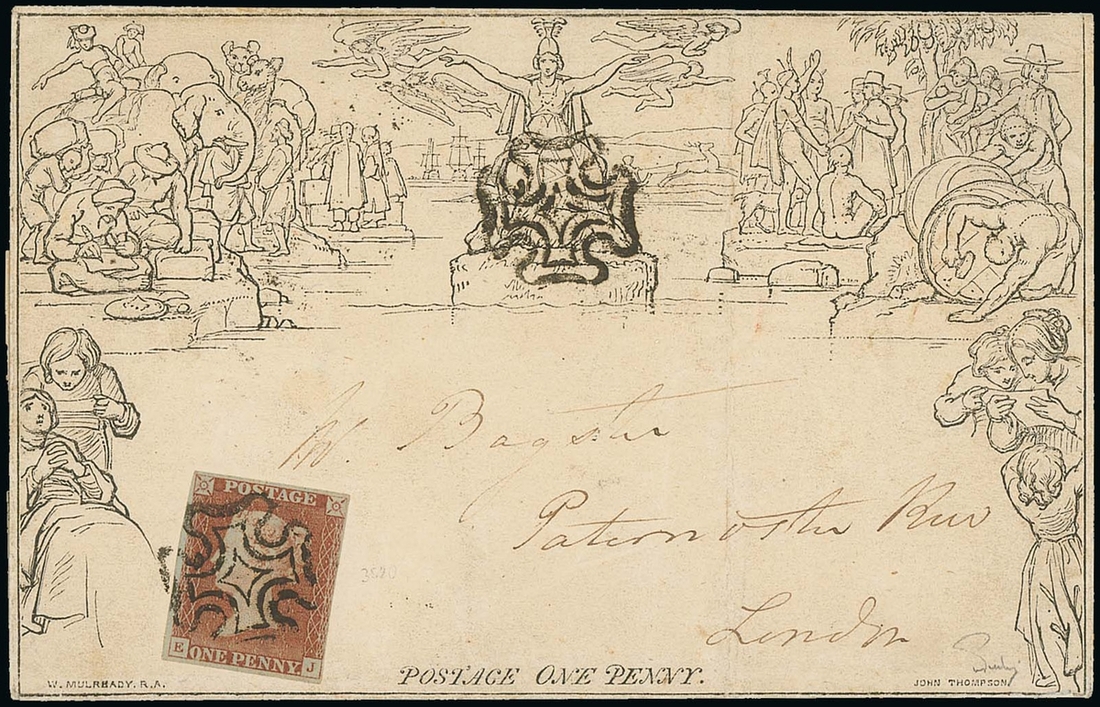 W. Bagster
Paternoster Row
London
POSTAGE
E ONE PENNY. J
POSTAGE ONE PENNY.
W. MULREADY. R.A.
JOHN THOMPSON